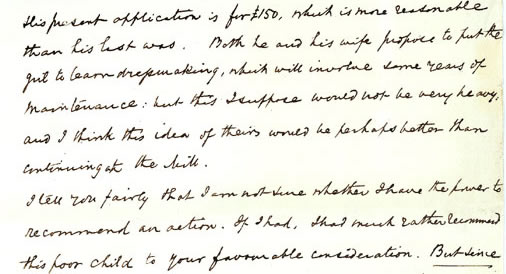 His present application is for £150, which is more reasonable
than his last was. Both he and his wife propose to put the
girl to learn dressmaking, which will involve some years of
maintenance: but this I suppose would not be very heavy,
and I think this idea of theirs would be perhaps better than
continuing at the Mill.
I tell you fairly that I am not sure whether I have the power to
recommend an action. If I had, I had much rather recommend
this poor child to your favourable consideration. But since